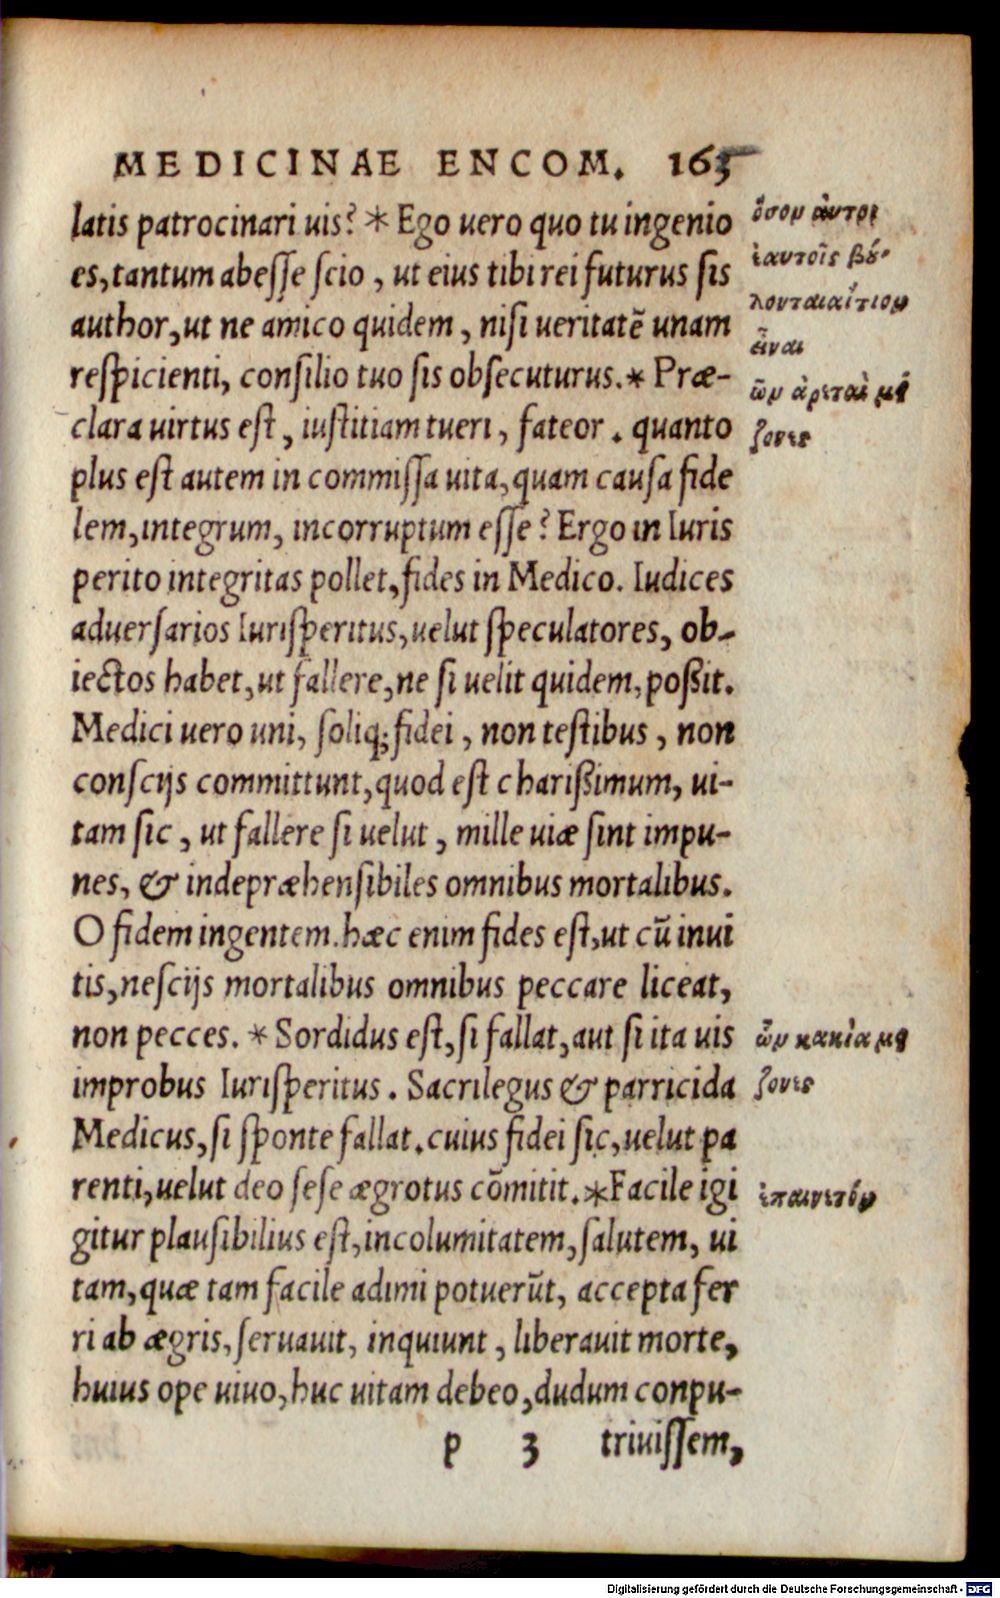 MEDICINAE ENCOM. 165
latis patrocinari uis? * Ego uero quo tu ingenio
es, tantum abesse scio, ut eius tibi rei futurus sis
author, ut ne amico quidem, nisi ueritatē unam
respicienti, consilio tuo sis obsecuturus. * Præ-
clara uirtus est, iustitiam tueri, fateor. quanto
plus est autem in commissa uita, quam causa fide
lem, integrum, incorruptum esse? Ergo in Iuris
perito integritas pollet, fides in Medico. Iudices
aduersarios Iurisperitus, uelut speculatores, ob-
iectos habet, ut fallere, ne si uelit quidem, poßit.
Medici uero uni, soliq; fidei, non testibus, non
conscijs committunt, quod est charißimum, ui-
tam sic, ut fallere si uelut, mille uiæ sint impu-
nes, & indepræhensibiles omnibus mortalibus.
O fidem ingentem. hæc enim fides est, ut cū inui
tis, nescijs mortalibus omnibus peccare liceat,
non pecces. * Sordidus est, si fallat, aut si ita uis
improbus Iurisperitus. Sacrilegus & parricida
Medicus, si sponte fallat. cuius fidei sic, uelut pa
renti, uelut deo sese ægrotus cōmitit. * Facile igi
gitur plausibilius est, incolumitatem, salutem, ui
tam, quæ tam facile adimi potuerūt, accepta fer
ri ab ægris, seruauit, inquiunt, liberauit morte,
huius ope uiuo, huc uitam debeo, dudum conpu-
p 3 triuissem,
ὅσον ἀυτοι
ἑαυτοῖς βού-
λονται αἴτιον
εἶναι
ὧν ἀρεταὶ μεί
ζονες
ὧν κακία μεί
ζονες
ἐπαινετόν
Digitalisierung gefördert durch die Deutsche Forschungsgemeinschaft - DFG